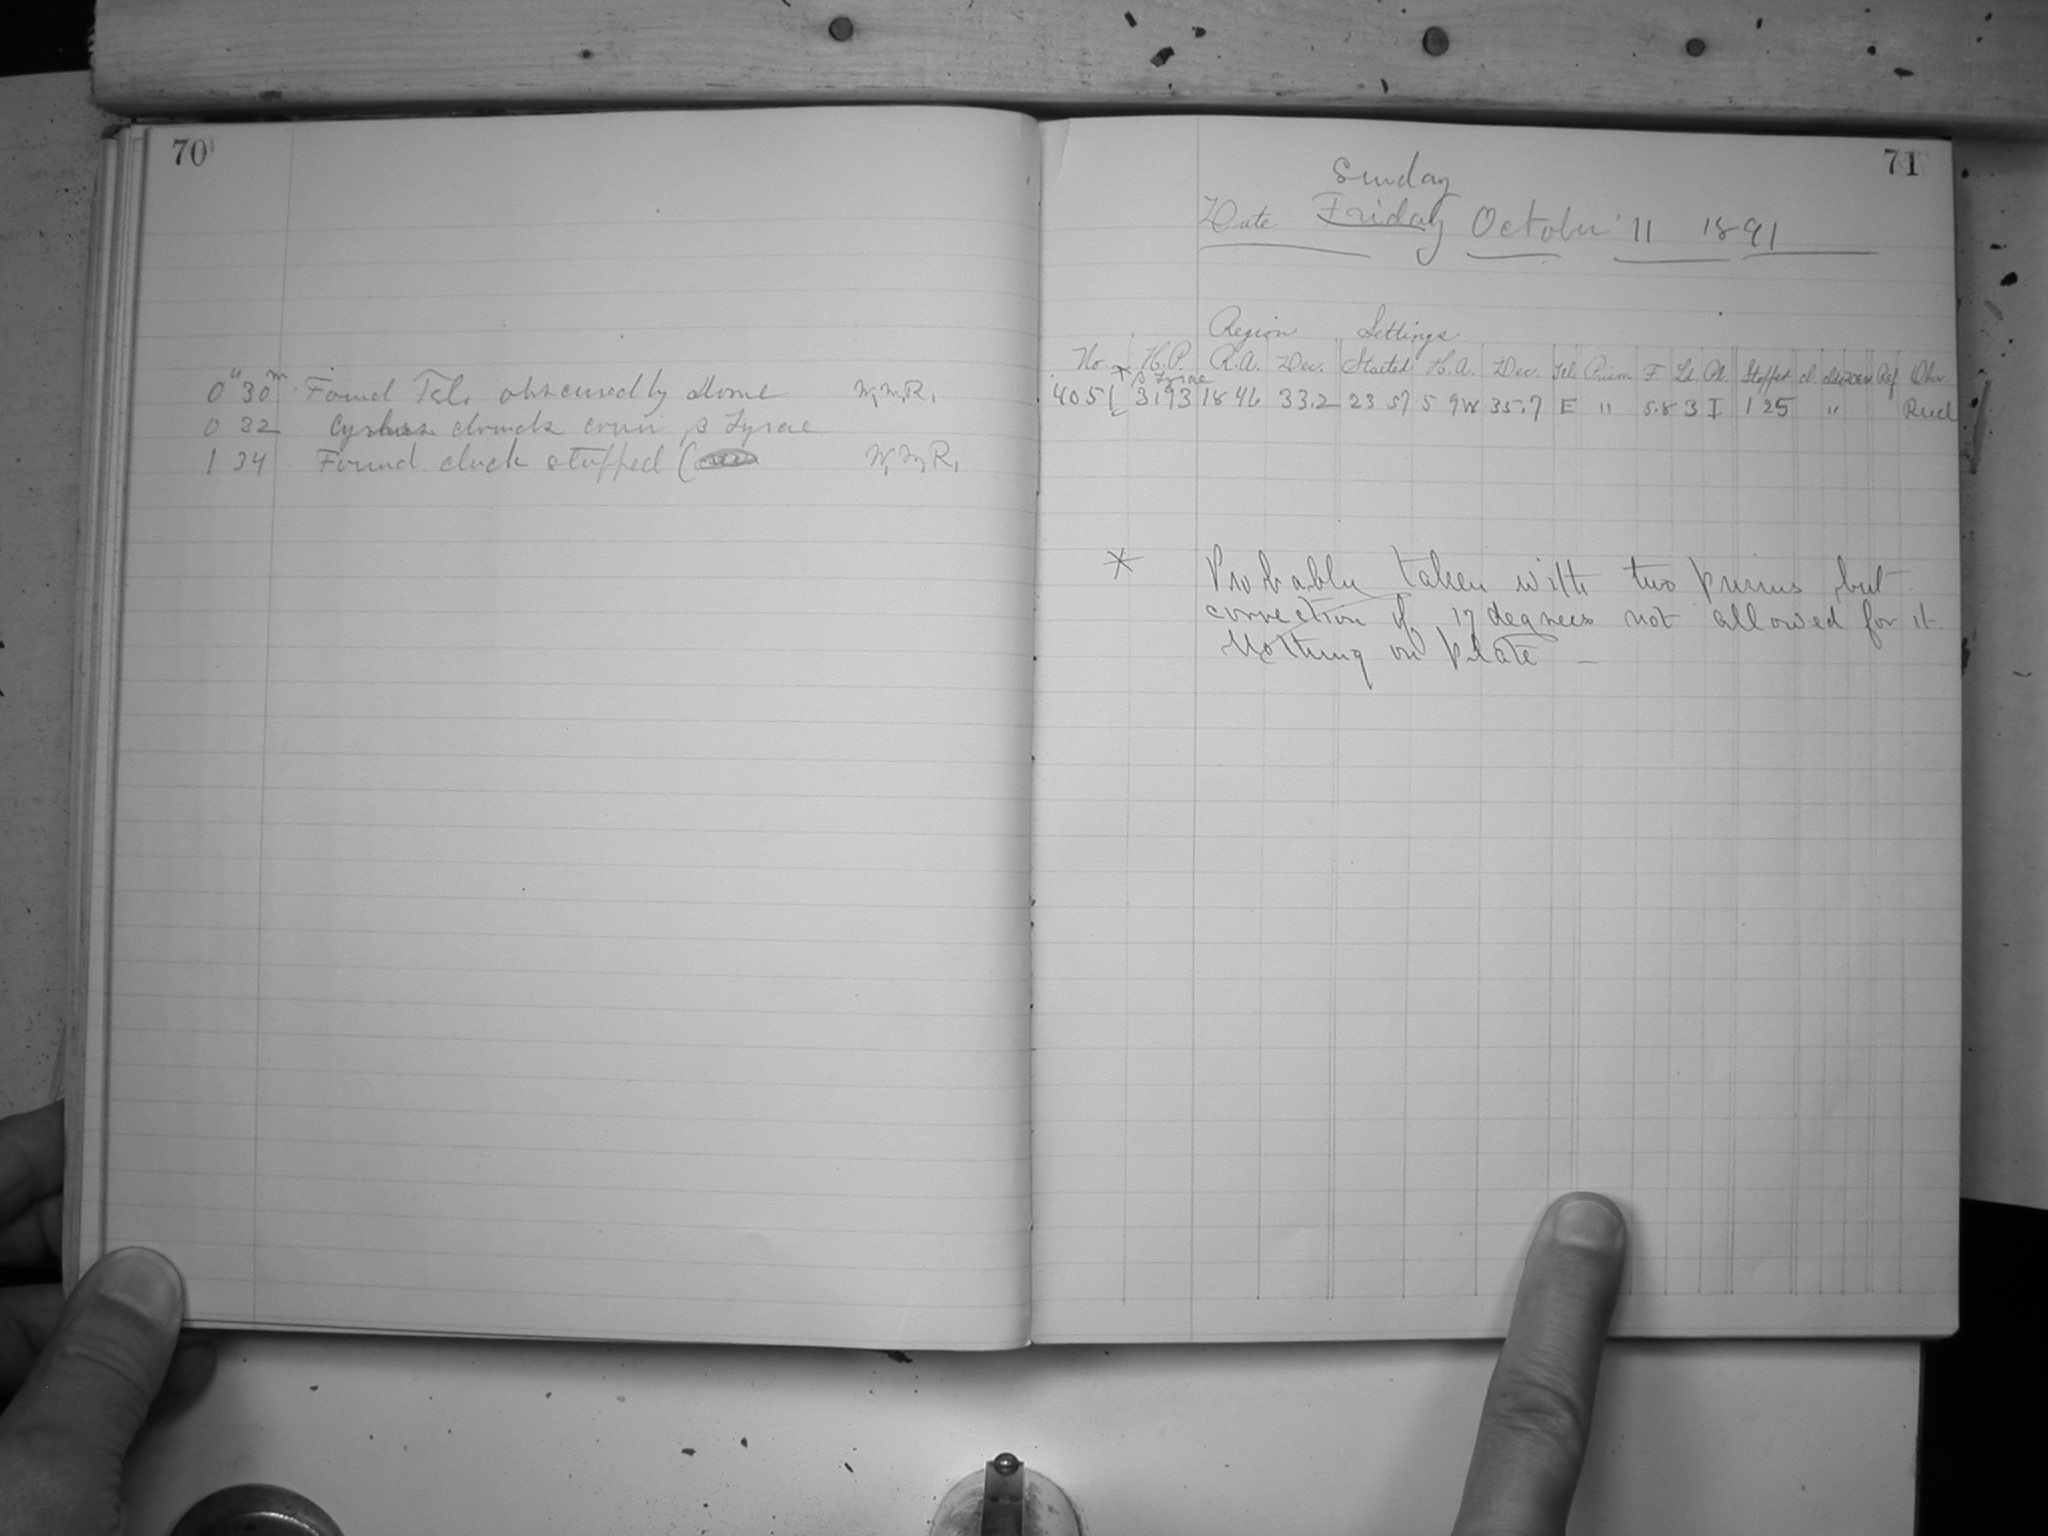 70
0ʰ 30ᵐ. Found Tel. obscured by dome W.M.R.
0 32 clouds cover β Lyrae
1 34 Found clock stopped ( W.M.R.
71
Sunday
Date Friday October 11 1891
Region Settings
No. * H.P. R.A. Dec. Started H.A. Dec. Tel. Prism F Lt. Pl. Stopped cl. Ref Obs.
β Lyrae
4051 3193 18 46 33.2 23 57 5 9W 35.7 E " 5.8 3 I 1 25 " Reed
* Probably taken with two prisms but
correction of 17 degrees not allowed for it.
Nothing on plate –